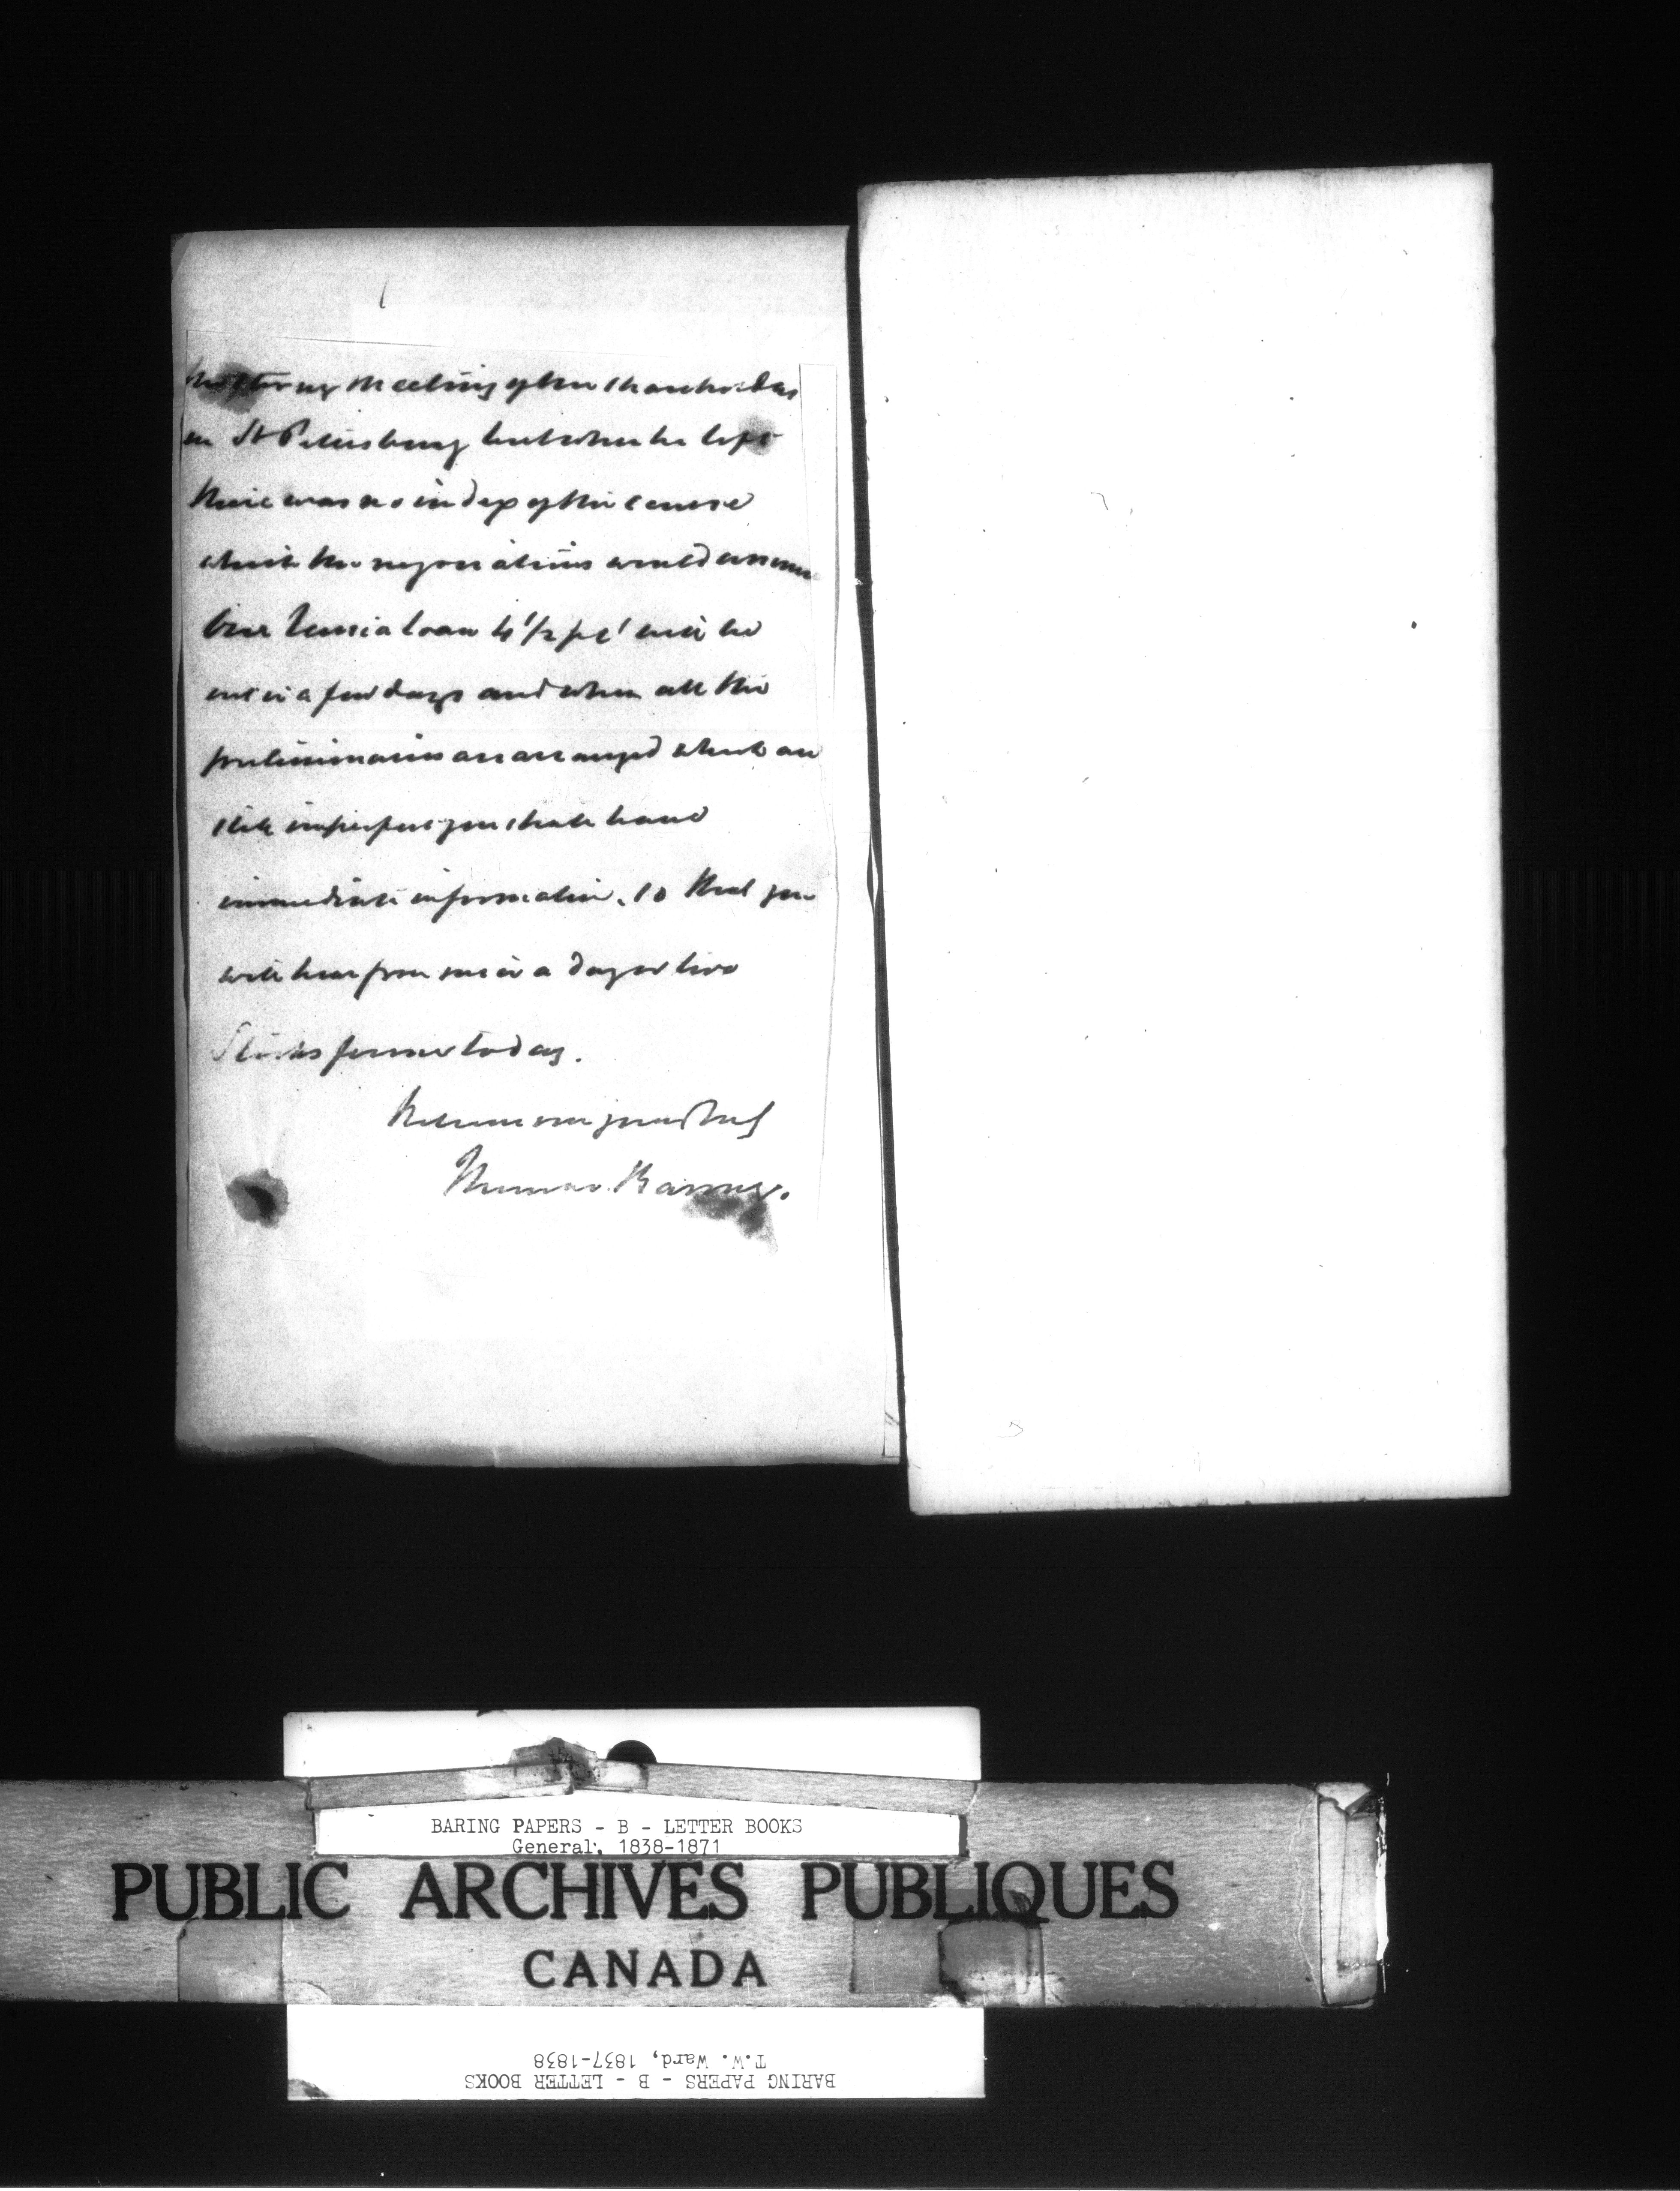 meeting of the shareholders
in St Petersburg but when he left
there was no index of the course
which the negociations would assume
Our Russia Loan 4 1/2 pc' will be
out in a few days and when all the
preliminaries are arranged which are
still imperfect you shall have
immediate information. so that you
will hear from me in a day or two
Stocks firmer today.
Believe me yours truly
Thomas Baring.
BARING PAPERS - B - LETTER BOOKS
General, 1838-1871
PUBLIC ARCHIVES PUBLIQUES
CANADA
T.W. Ward, 1837-1838
BARING PAPERS - B - LETTER BOOKS